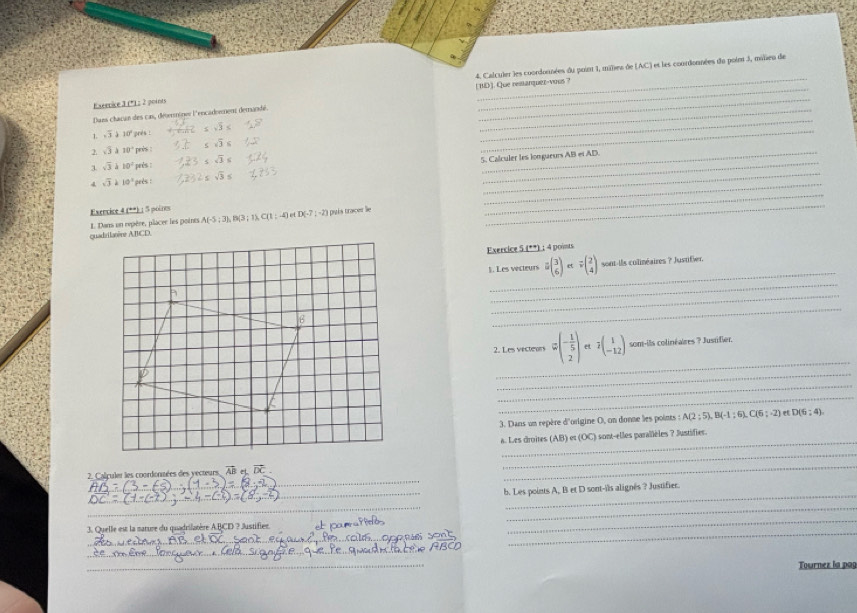 Exercice 3 (*) : 2 points
Dans chacun des cas, déterminer l'encadrement demandé.
1. √3 à 10⁰ près : ≤ √3 ≤ 1,8
2. √3 à 10⁻¹ près : ≤ √3 ≤
3. √3 à 10⁻² près : 1,73 ≤ √3 ≤ 1,74
4. √3 à 10⁻³ près : 1,732 ≤ √3 ≤ 1,733
Exercice 4 (**) : 5 points
1. Dans un repère, placer les points A(-5 ; 3), B(3 ; 1), C(1 ; -4) et D(-7 ; -2) puis tracer le
quadrilatère ABCD.
A
B
D
C
2. Calculer les coordonnées des vecteurs AB et DC .
AB = (3 - (-5) ; (1 - 3) = (8 ; -2)
DC = (1 - (-7) ; -4 - (-2) = (8 ; -2)
3. Quelle est la nature du quadrilatère ABCD ? Justifier.
et parallèles
Les vecteurs AB et DC sont égaux, les côtés opposés sont
de même longueur. Cela signifie que le quadrilatère ABCD
4. Calculer les coordonnées du point I, milieu de [AC] et les coordonnées du point J, milieu de
[BD]. Que remarquez-vous ?
5. Calculer les longueurs AB et AD.
Exercice 5 (**) : 4 points
1. Les vecteurs u(3 6) et v(2 4) sont-ils colinéaires ? Justifier.
2. Les vecteurs w(-1/5 2) et z(1 -12) sont-ils colinéaires ? Justifier.
3. Dans un repère d'origine O, on donne les points : A(2 ; 5), B(-1 ; 6), C(6 ; -2) et D(6 ; 4).
a. Les droites (AB) et (OC) sont-elles parallèles ? Justifier.
b. Les points A, B et D sont-ils alignés ? Justifier.
Tournez la pag